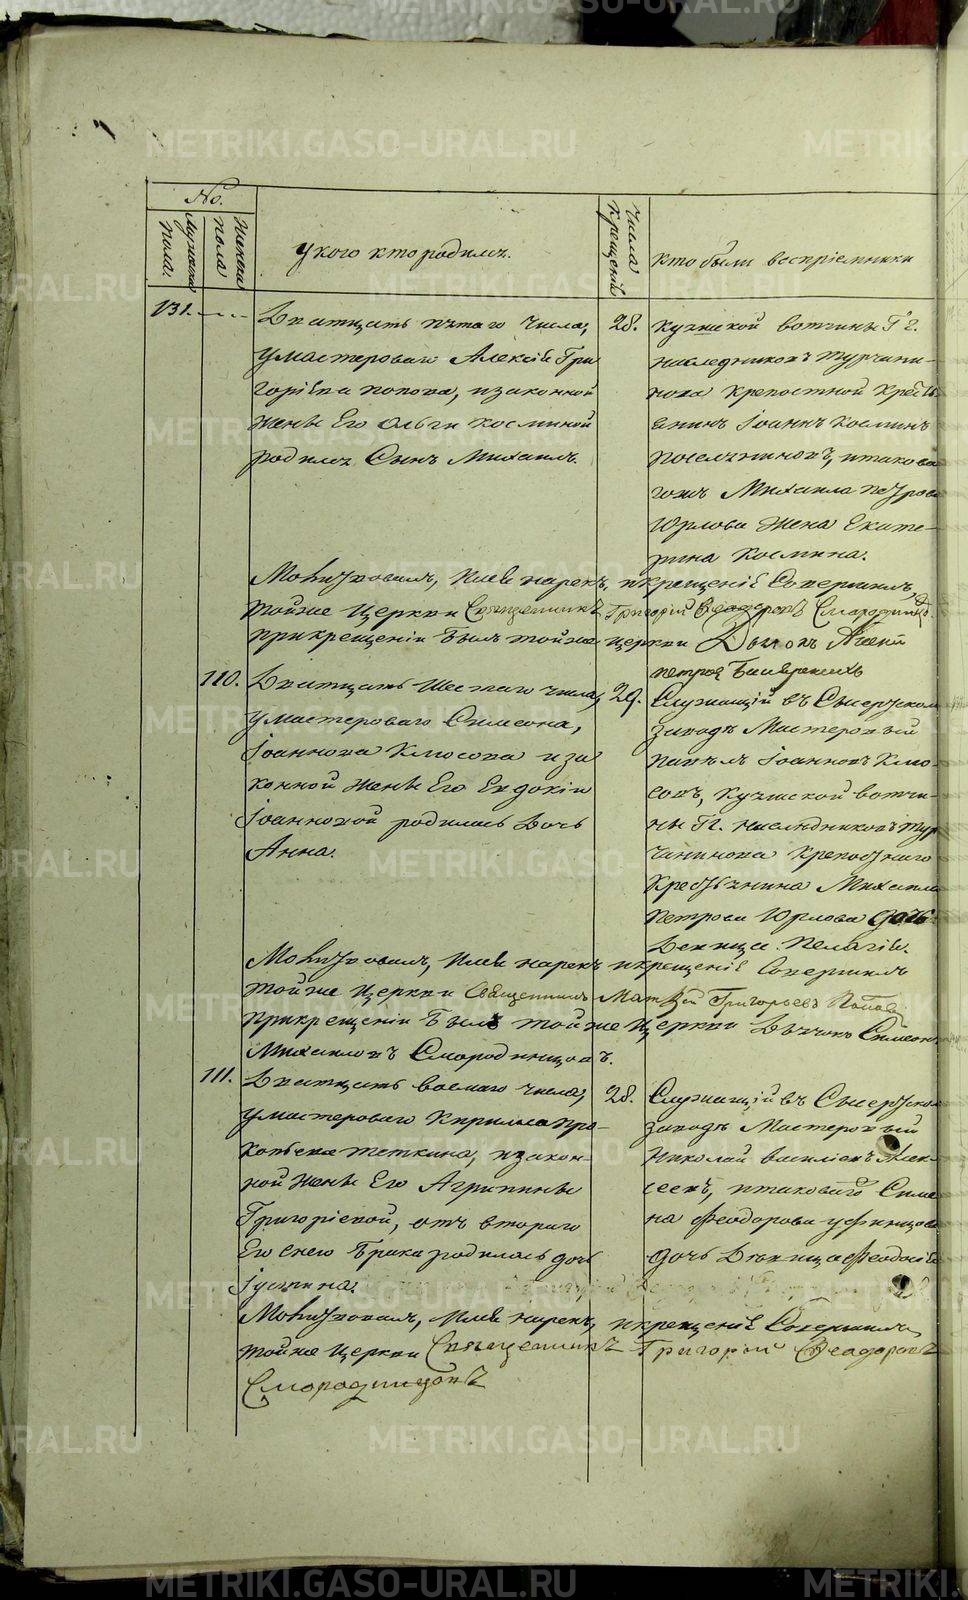 No.
Мужеска пола.
Женска пола
У кого кто родился.
Числа крещенiй
Кто были воспрiемники
131.
Дватцать пятаго числа,
у мастероваго Алексiя Гри
горiева Попова, и законной
жены Его Ольги Косминой
родился Сынъ Михаилъ.
28.
Кунгской вотчины Гг.
наследниковъ Турчани-
нова крепостной Крестья
анинъ Iоаннъ Косминъ
и такова
гожъ Михаила Петрова
Юрлова Жена Екате-
рина Космина.
Молитвовалъ, Имя нарекъ, и крещенiе Совершилъ,
тойже Церкви Священникъ Григорiй Феодоровъ Смородинцовъ
при крещенiи былъ тойже церкви Дьячокъ
Петровъ
110.
Дватцать Шестаго числа,
у мастероваго Симеона,
Iоаннова Клюсова и за
конной жены Его Евдокiи
Iоанновой родилась Дочь
Анна.
29.
Служащiй въ Сысертском
заводе Мастеровый
Павелъ Iоанновъ Клю-
совъ, Кунгской вотчи-
ны Гг. наследниковъ Тур
чанинова крепостнаго
Крестьянина Михаила
Петрова Юрлова дочь
Девица Пелагiя.
Молитвовалъ, Имя нарекъ и крещенiе Совершилъ
тойже церкви Священникъ Матфiй Григорьевъ Поповъ
при крещенiи былъ тойже Церкви Дьячокъ Симеонъ
Михаиловъ Смородинцовъ.
111.
Дватцать восмаго числа,
у мастероваго Кирилла Про-
копьева Теткина, и закон-
ной жены Его Агрипины
Григорiевой, отъ втораго
Его сего брака родилась дочь
Iустина.
28.
Служащiй въ Сысертском
заводе Мастеровый
Николай Василiевъ Алек-
сеевъ, и таковаго Симе
на Феодорова Уфинцова
дочь Девица Феодосiя
Молитвовалъ, Имя нарекъ, и крещенiе Совершилъ
тойже церкви Священникъ Григорiй Феодоровъ
Смородинцовъ
METRIKI.GASO-URAL.RU